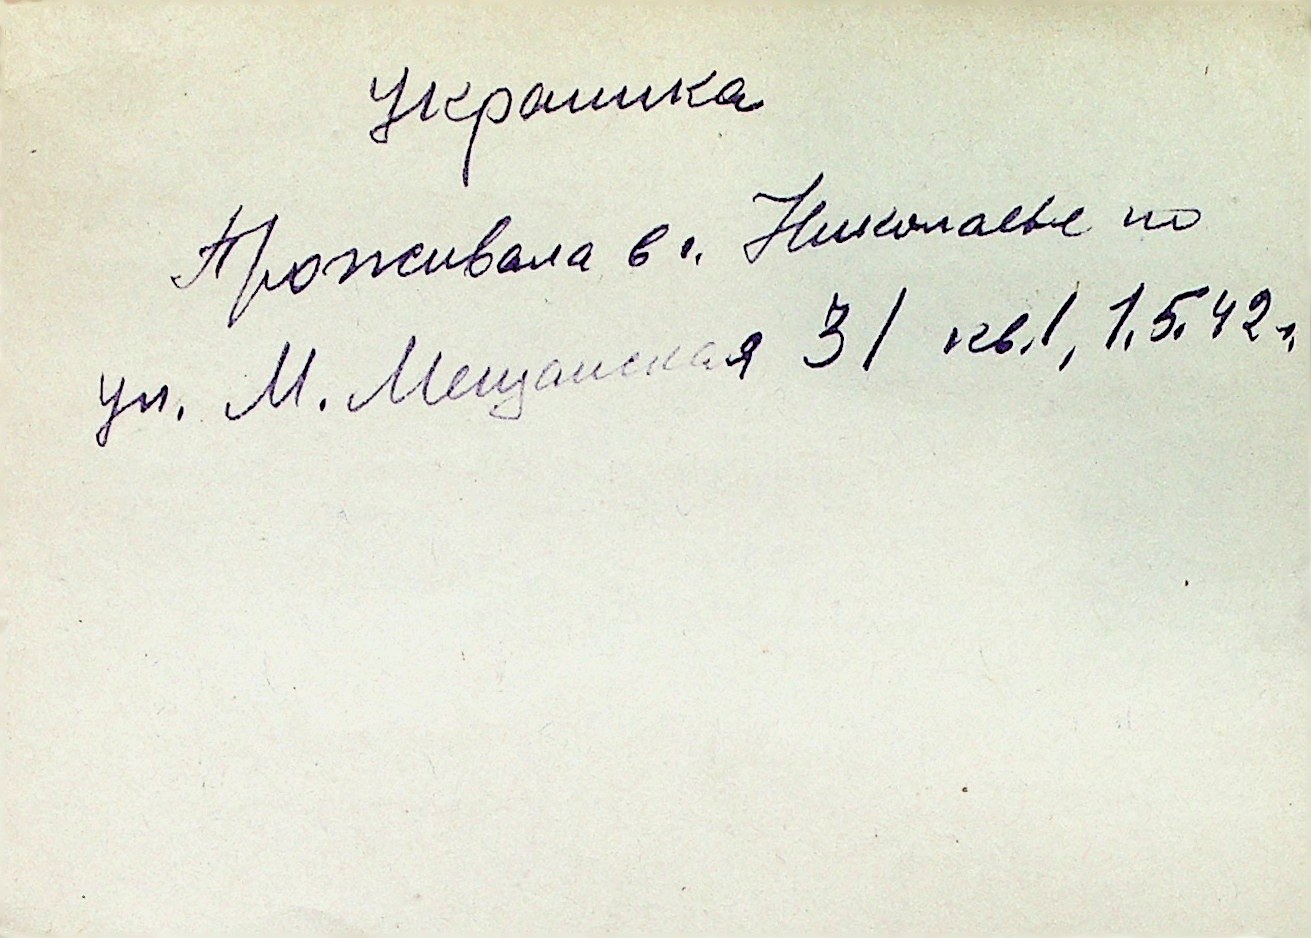 Украинка
Проживала в г. Николаеве по
ул. М. Мещанская 31 кв.1, 1.5.42г.